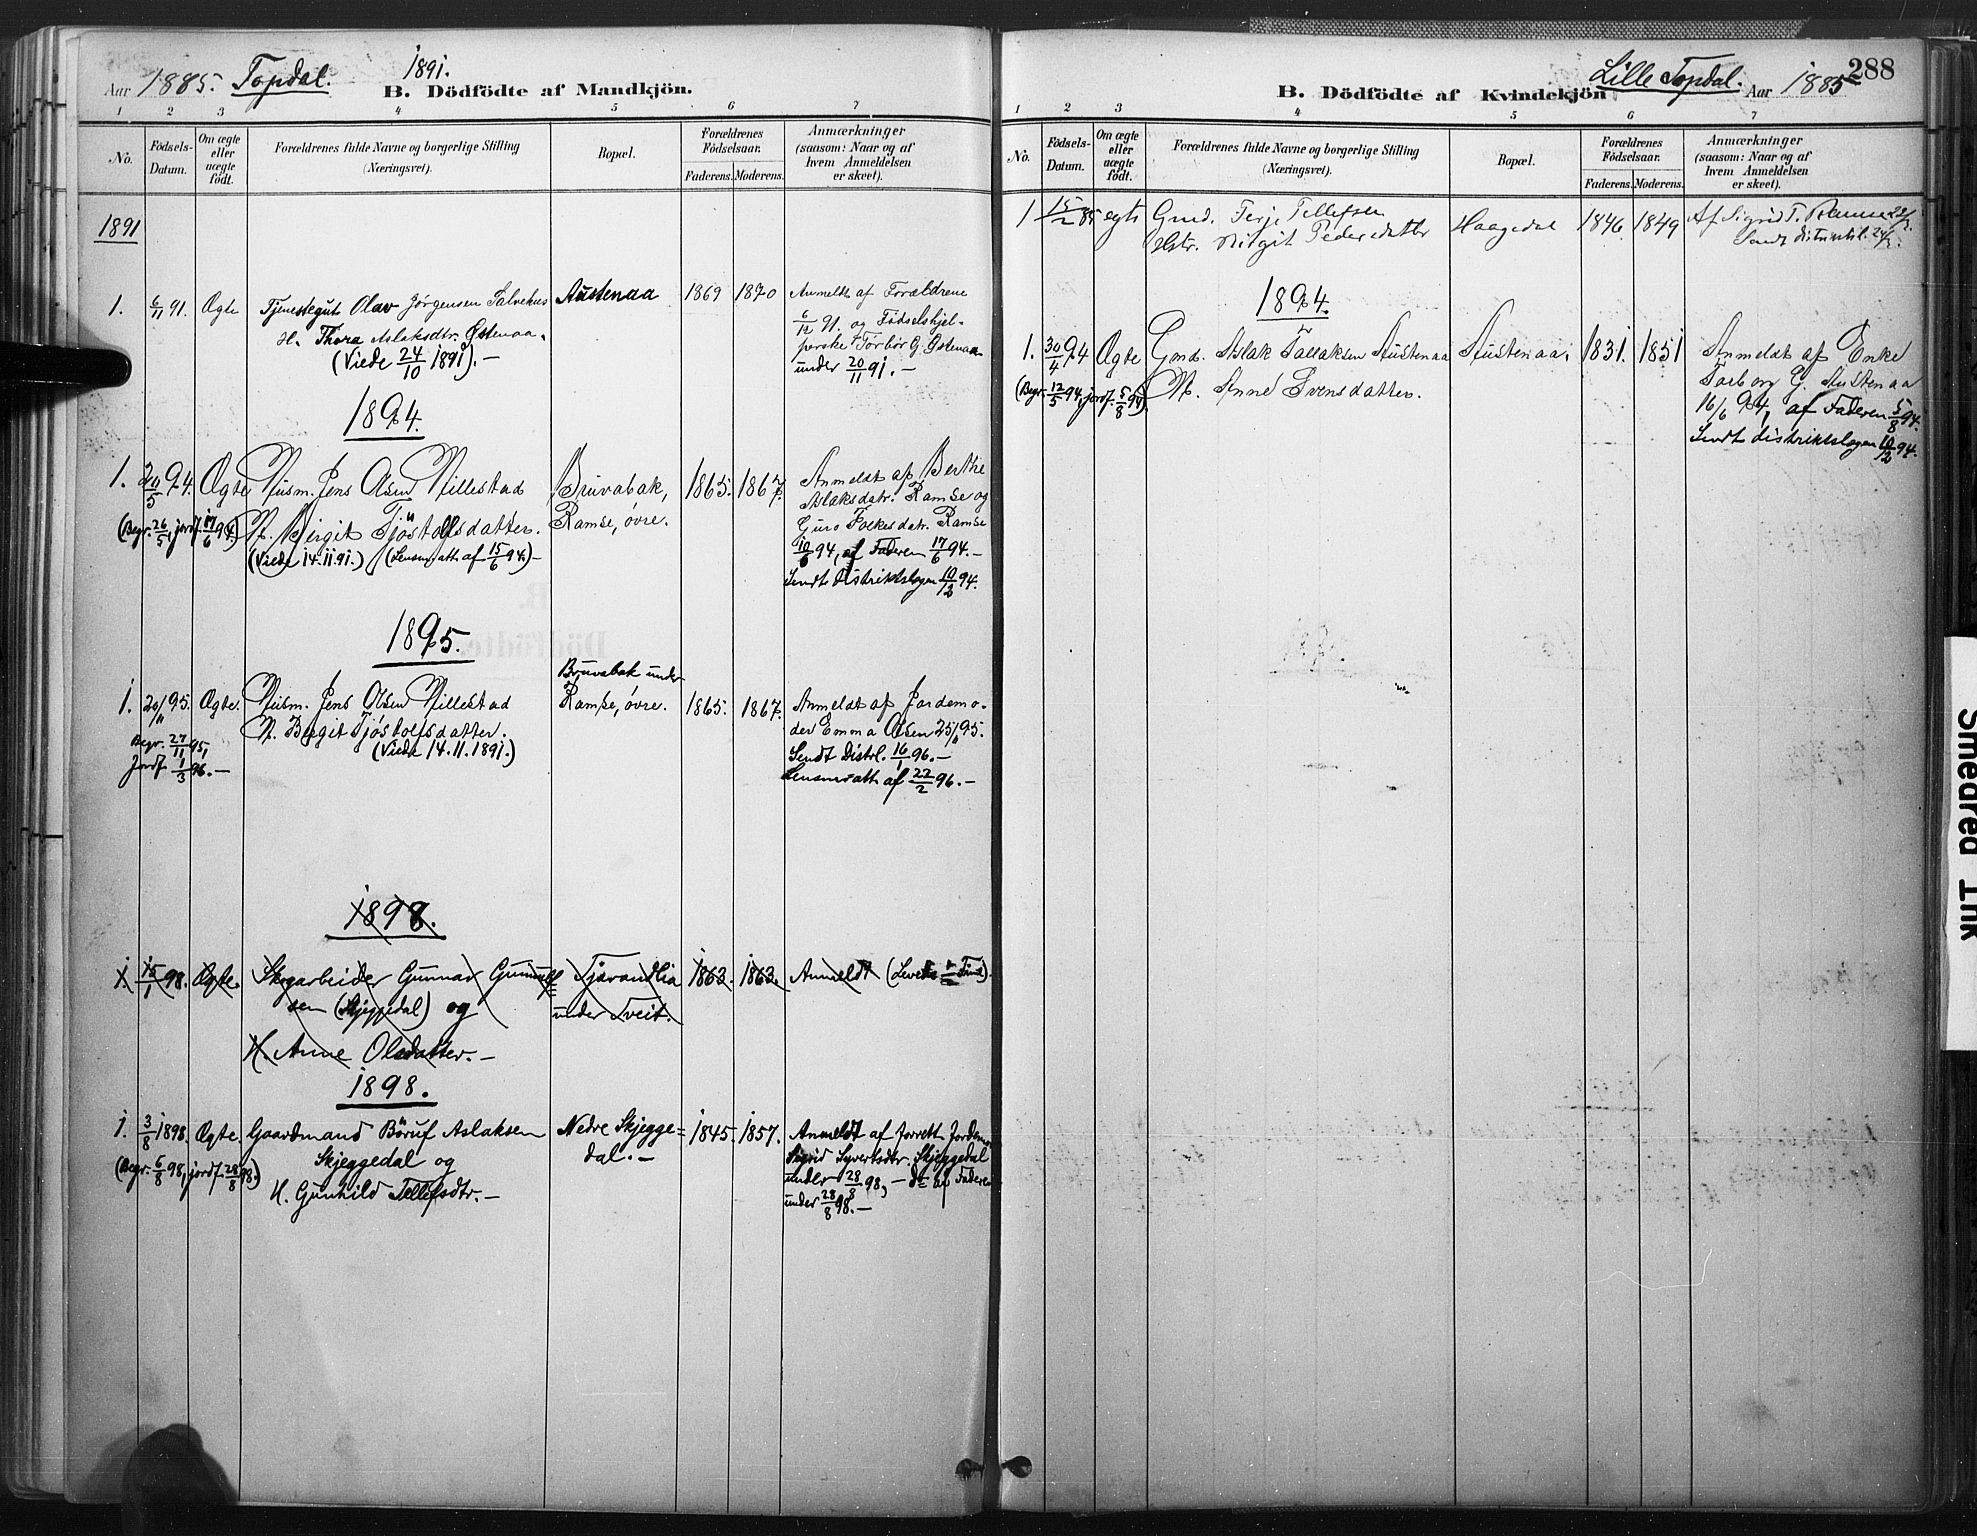 Aar 1885. Topdal. 1891.
B. Dödfödte af Mandkjön.
1 2 3 4 5 6 7
No.
Födsels-Datum.
Om ægte eller uægte födt.
Forældrenes fulde Navne og borgerlige Stilling (Næringsvei).
Bopæl.
Forældrenes Födselsaar.
Faderens. Moderens.
Anmærkninger (saasom: Naar og af hvem Anmeldelsen er skeet).
1891
1. 6/11 91. Ægte Tjenestegut Olav Jørgensen Salvehus Austenaa 1869 1870 Anmeldt af Forældrene
H. Thora Aslaksdtr. Østenaa. 6/12 91. og Födselshjel-
(Viede 24/10 1891). — perske Torbör G. Østenaa
under 20/11 91. —
1894.
1. 20/5 94. Ægte Husm. Jens Olsen Hillestad Bruvabak, 1865. 1867. Anmeldt af Berthe
Aslaksdatr. Ramse og
(Begr. 26/5, jordf. 17/6 94.) H. Birgit Tjöstolfsdatter. Ramse, övre. Guro Folkesdatr. Ramse
(Viede 14.11.91.) (Lensm. att. af 15/6 94.) — 10/6 94, af Faderen 17/6 94. —
Sendt distriktslægen 10/2 94.
1895.
Bruvabak under
1. 20/11 95. Ægte. Husm. Jens Olsen Hillestad Ramse, övre. 1865. 1867. Anmeldt af Jordemo-
Begr. 27/11 95, H. Birgit Tjöstolfsdatter. der Emma Olsen 25/11 95.
Jordf. 1/3 96. — (Viede 14.11.1891.) Sendt Distrl. 16/1 96. —
Lensm. att. af 22/2 96. —
1898.
1. 15/1 98. Ægte. Skogarbeider Gunnar Gunnulf= Tjarandlia 1863. 1863. Anmeldt (Levede
sen (Skjeggedal) og under Tveit.
H. Anne Olsdatter. —
1898.
1. 3/8 1898. Ægte. Gaardmand Böruf Aslaksen Nedre Skjegge= 1845. 1857. Anmeldt af Jordem.
(Begr. 6/8 98, jordf. 28/8 98.) Skjeggedal og dal. — Sigrid Syvertsdtr. Skjeggedal
H. Gunhild Tellefsdtr. — under 28/8 98, — af Faderen
under 28/8 98. —
Lille Topdal. Aar 1885
288
B. Dödfödte af Kvindekjön
1 2 3 4 5 6 7
No.
Födsels-Datum.
Om ægte eller uægte födt.
Forældrenes fulde Navne og borgerlige Stilling (Næringsvei).
Bopæl.
Forældrenes Födselsaar.
Faderens. Moderens.
Anmærkninger (saasom: Naar og af hvem Anmeldelsen er skeet).
1 15/2 85 egte Gmd. Terje Tellefsen Haagedal 1846 1849 Af Sigrid T. Ramse
Hstr. Birgit Pedersdatter
1894.
1. 30/4 94 Ægte Gmd. Aslak Tallaksen Austenaa Austenaa. 1831. 1851 Anmeldt af Enke
(Begr. 12/5 94, jordf. 5/8 94). H. Anne Svensdatter. Torborg G. Austenaa
16/6 94, af Faderen 5/8 94.
Sendt distriktslægen 10/2 94.
Smeared Ink